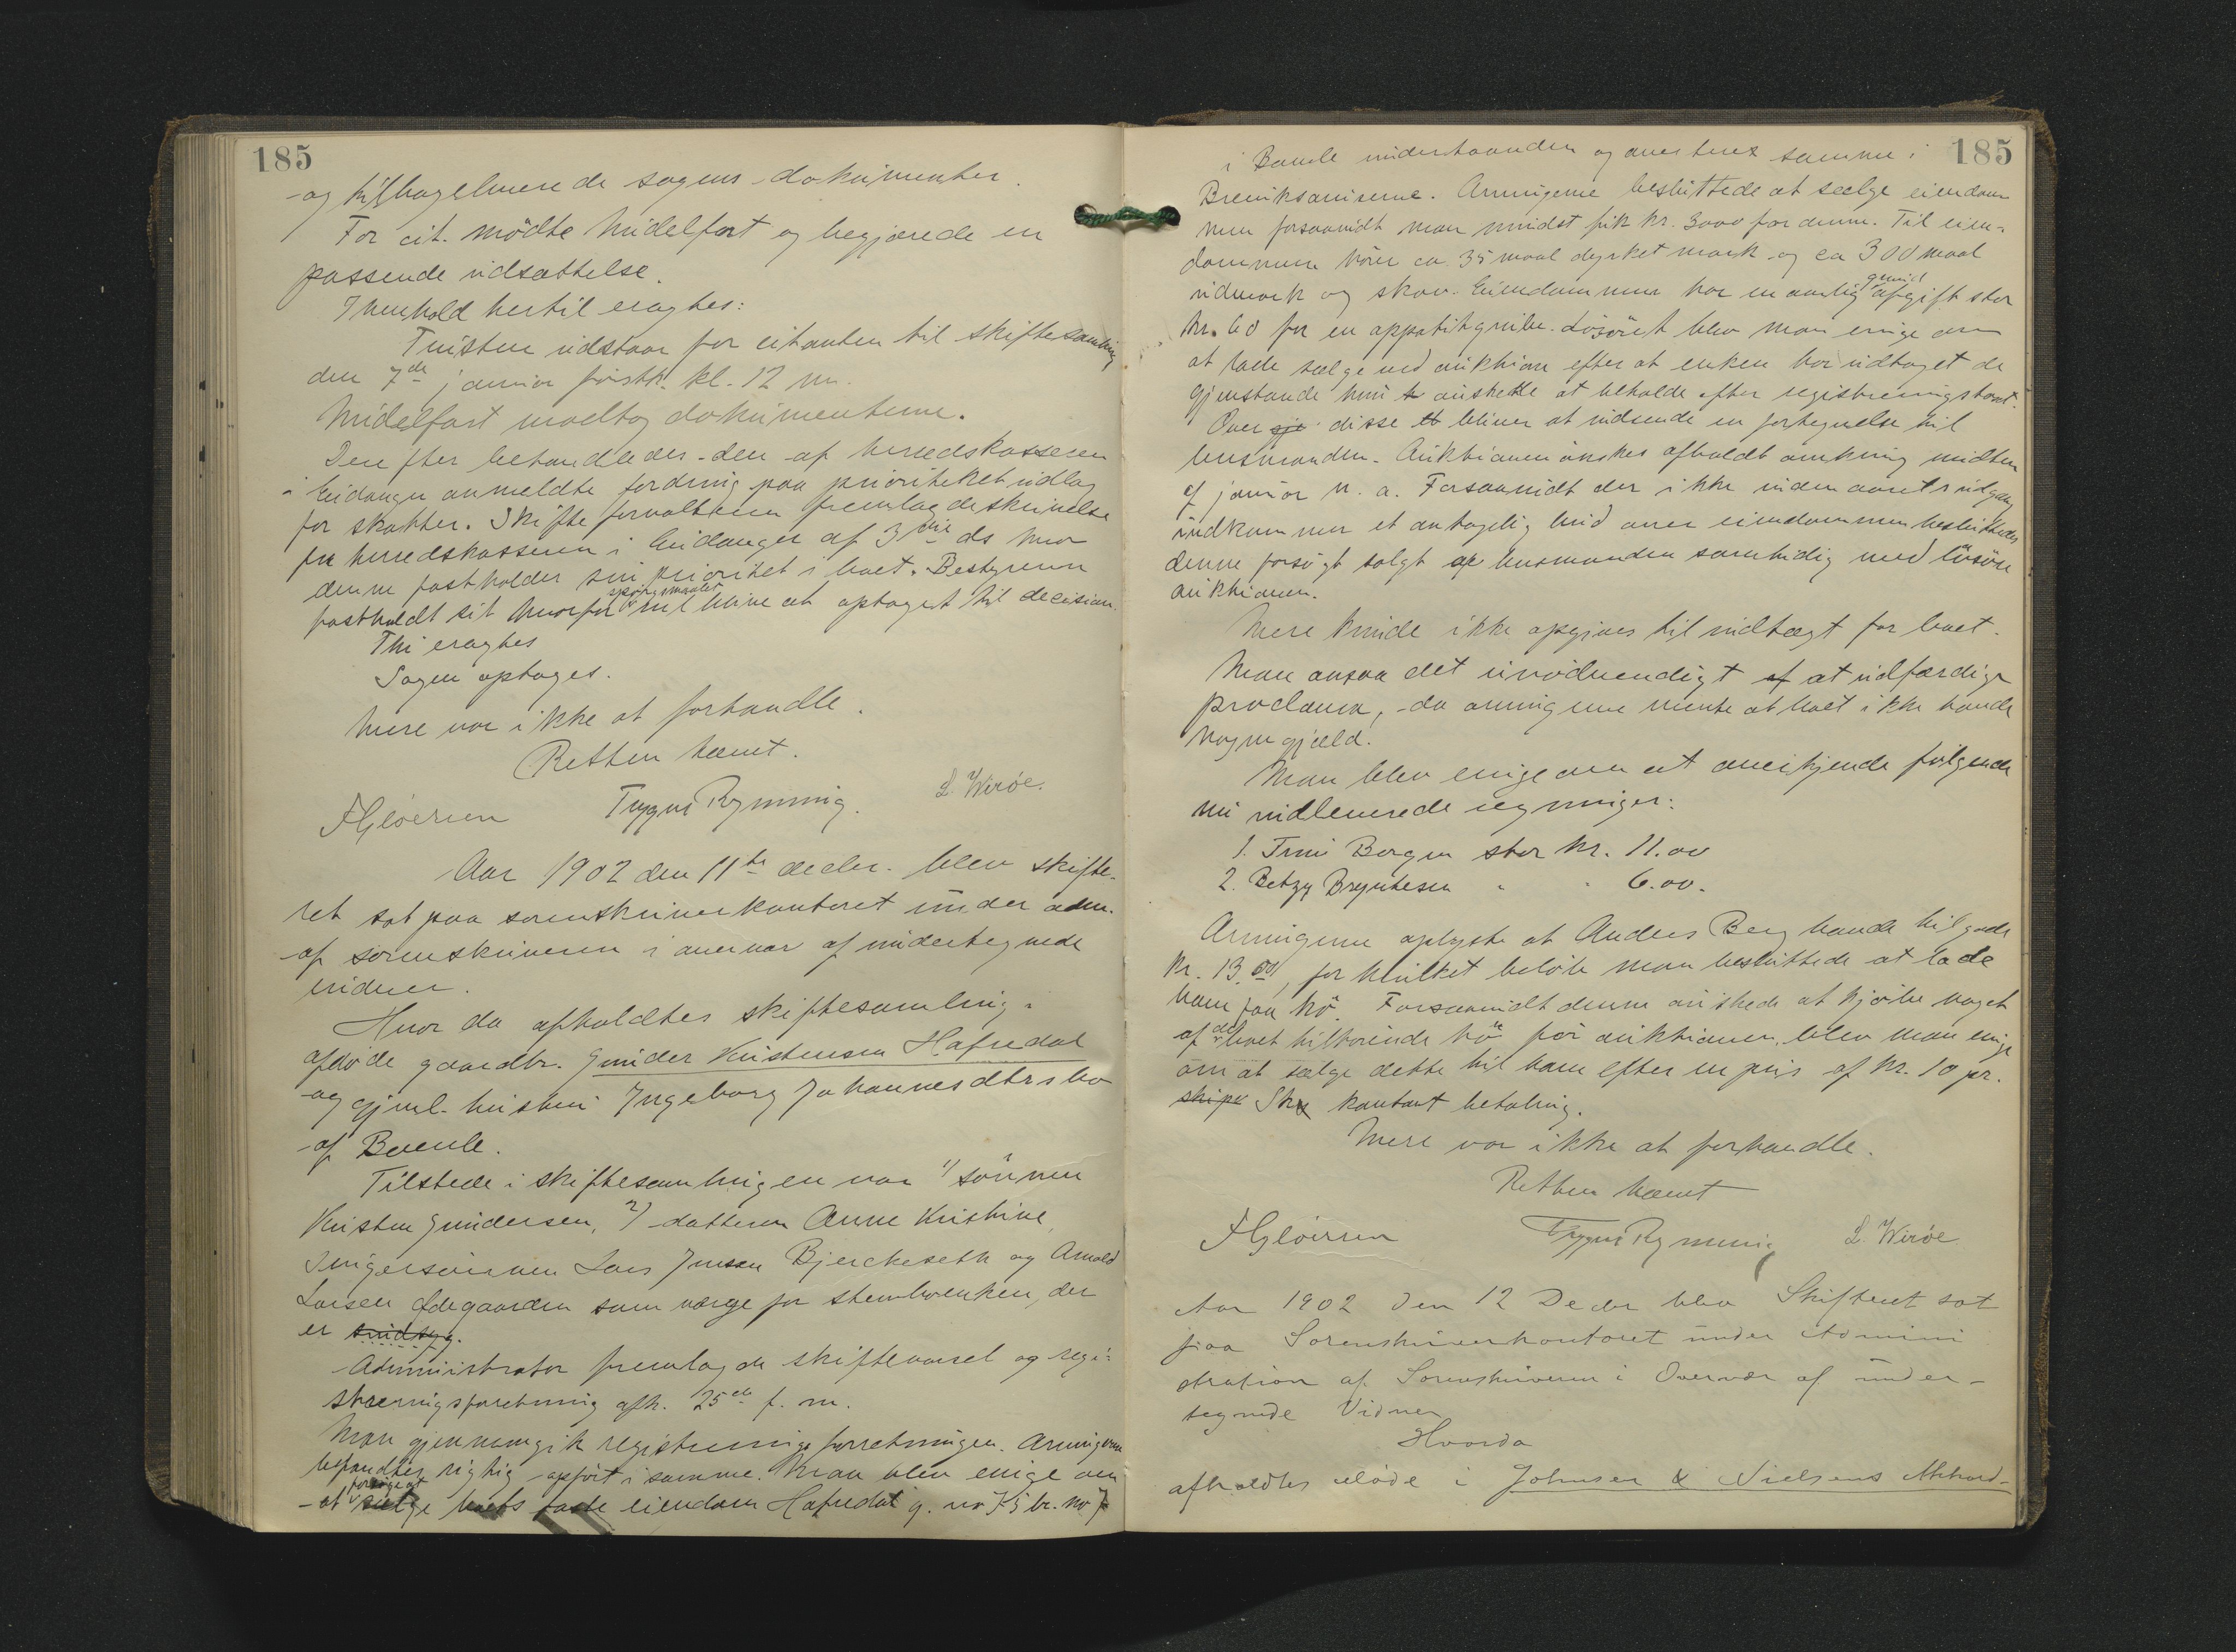 185
og tilbageleverede sagens dokumenter.
For cit. mödte Midelfart og begjærede en
passende udsættelse.
I henhold hertil eragtes:
Tvisten udstaar for citanten til skiftesamling
den 7de januar förstk. kl. 12 m.
Midelfart modtog dokumenterne.
Derefter behandledes den af herredskasseren
i Eidanger anmeldte fordring paa prioritet udlag
for skatter. Skifteforvalteren fremlagde skrivelse
fra herredskasseren i Eidanger af 3die ds hvor
denne fastholder sin prioritet i boet. Bestyreren
spörgsmaalet
fastholdt sit hvorfor vil blive at optaget til decision.
Thi eragtes
Sagen optages.
Mere var ikke at forhandle.
Retten hævet.
FGlöersen Trygve Rynning. L. Wiröe.
Aar 1902 den 11te decbr. blev skifte-
ret sat paa sorenskriverkontoret under adm.
af sorenskriveren i overvær af undertegnede
vidner.
Hvor da afholdtes skiftesamling i
afdöde gaardbr. Gunder Kristensen Hafredal
og gjenl. hustru Ingeborg Johannesdtrs bo
af Bamle.
Tilstede i skiftesamlingen var 1) sönnen
Kristen Gundersen, 2) datteren Anne Kristine,
Svigersönnen Lars Jensen Bjerckeseth og Arnold
Larsen Ödegaarden som værge for stervboenken, der
er sindsyg.
Administrator fremlagde skiftevarsel og regi-
streringsforretning afh. 25de f. m.
Man gjennemgik registreringsforretningen. Arvingerne
befandtes rigtig opfört i samme. Man blev enige om
forsögsvis
at sælge boets faste eiendom Hafredal g. no 75 br. no 7
185
i Bamle underhaanden og avertere samme i
Breviksaviserne. Arvingerne besluttede at sælge eiendom-
men forsaavidt man mindst fik kr. 3000 for denne. Til eien-
dommen hörer ca 35 maal dyrket mark og ca 300 maal
grund
udmark og skov. Eiendommen har en aarlig afgift stor
kr. 60 for en appatitgrube. Lösöret blev man enige om
at lade sælge ved auktion efter at enken har udtaget de
gjenstande hun önskede at beholde efter registreringstaxt.
Over disse bliver at indsende en fortegnelse til
lensmanden. Auktionen önskes afholdt omkring midten
af januar n. a. Forsaavidt der ikke inden aarets udgang
indkommer et antagelig bud over eiendommen besluttedes
denne forsögt solgt af lensmanden samtidig med lösöre
auktionen.
Mere kunde ikke opgives til indtægt for boet.
Man ansaa det unödvendigt af at udfærdige
proclama, da arvingerne mente at boet ikke havde
nogen gjæld.
Man blev enige om at anerkjende fölgende
nu indleverede regninger:
1. Trine Borgen stor kr. 11.00
2. Betzy Bryntesen " " 6.00.
Arvingerne oplyste at Anders Berg havde tilgode
kr. 13.00, for hvilket belöb man besluttede at lade
ham faa hö. Forsaavidt denne önskede at kjöbe noget
af det boet tilhörende hö för auktionen, blev man enige
om at sælge dette til ham efter en pris af kr. 10 pr.
skip Sk kontant betaling.
Mere var ikke at forhandle.
Retten hævet
FGlöersen Trygve Rynning L. Wiröe
Aar 1902 den 12 Decbr blev Skifteret sat
paa Sorenskriverkontoret under Admini
stration af Sorenskriveren i Overvær af under-
tegnede Vidner
Hvorda
afholdtes Möde i Johnsen & Nielsens Akkord-